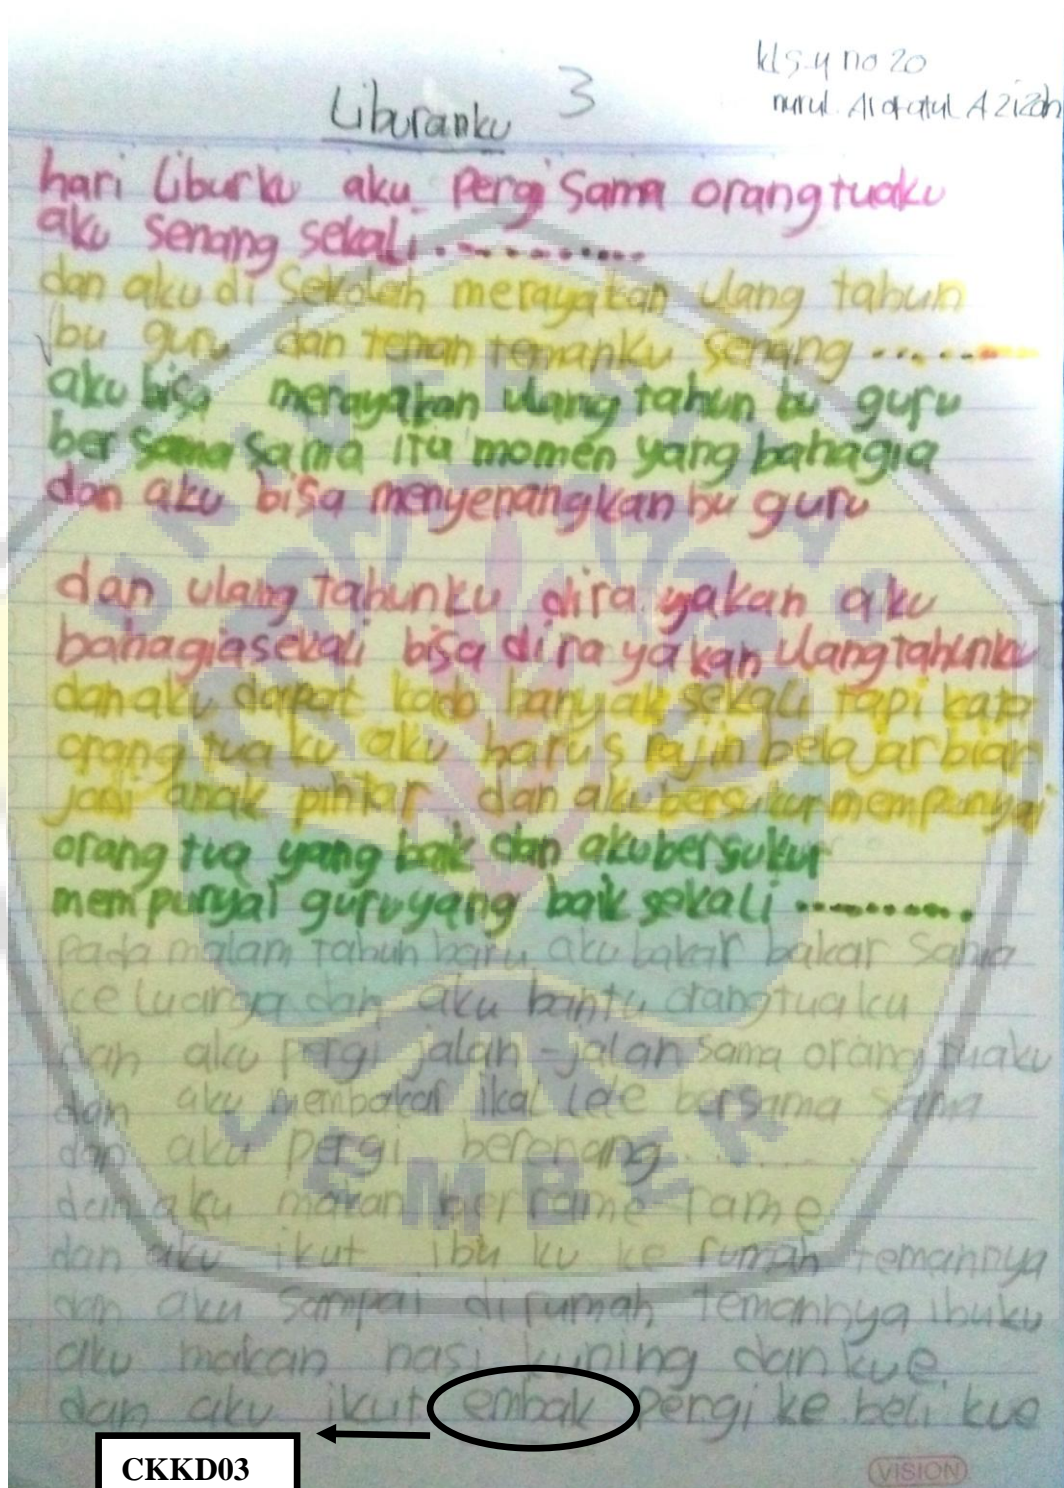 kls 4 no 20
Liburanku 3
nurul Arofatul Azizah
hari liburku aku pergi sama orang tuaku
aku senang sekali ............
dan aku di Sekolah merayakan ulang tahun
bu guru dan teman temanku senang .......
aku bisa merayakan ulang tahun bu guru
ber sama sama itu momen yang bahagia
dan aku bisa menyenangkan bu guru
dan ulang tahunku dira yakan aku
bahagia sekali bisa di ra yakan ulang tahunku
dan aku dapat kado banyak sekali tapi kata
orang tua ku aku harus rajin belajar biar
jadi anak pintar dan aku bersukur mempunyai
orang tua yang baik dan aku bersukur
mempunyai guru yang baik sekali ..........
pada malam tahun baru aku bakar bakar sama
keluarga dan aku bantu orang tua ku
dan aku pergi jalan-jalan sama orang tuaku
dan aku membakar ikal lele bersama sama
dan aku pergi berenang .......
dan aku makan berrame rame
dan aku ikut ibu ku ke rumah temannya
dan aku sampai dirumah temannya ibuku
aku makan nasi kuning dan kue
dan aku ikut embak pergi ke beli kue
CKKD03
VISION
UNIVERSITAS
JEMBER